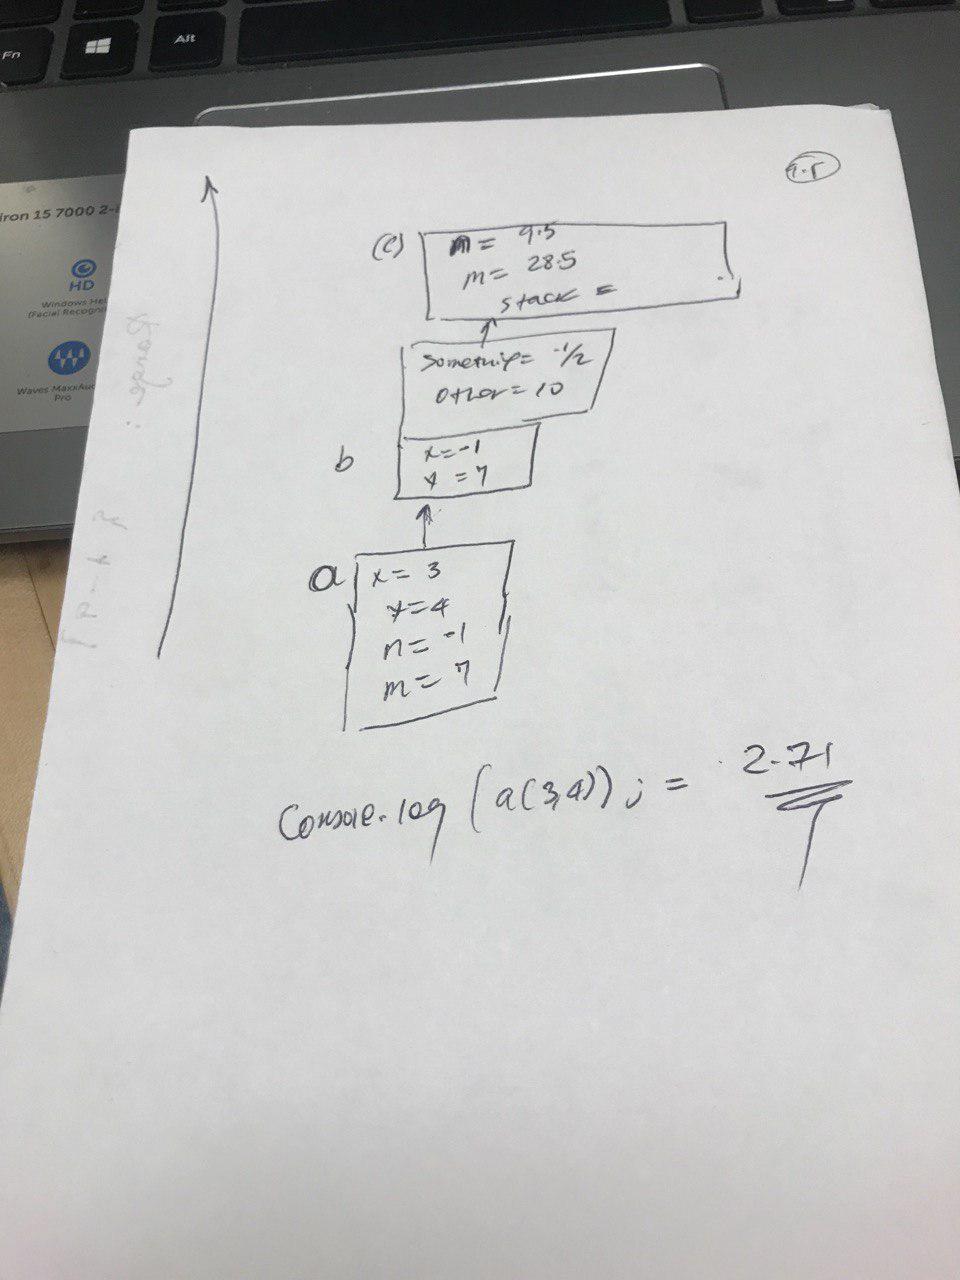 Fn
Alt
iron 15 7000 2-i
HD
Windows He
(Facial Recogni
Waves MaxxAud
Pro
(c)
m = 9.5
m = 28.5
stack =
= -1/2
other = 10
b
x = -1
y = 7
a
x = 3
y = 4
n = -1
m = 7
Console.log (a(3,4)); = 2.71